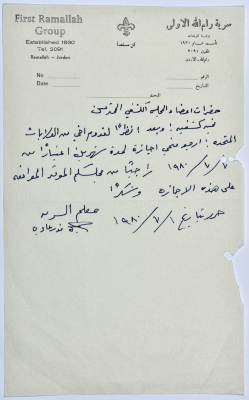 First Ramallah
Group
Established 1930
Tel. 3091
Ramallah - Jordan
سرية رام الله الاولى
تأسست عام ١٩٣٠
تلفون ٣٠٩١
رام الله - الاردن
كن مستعداً
No
Date
الرقم
التاريخ
حضرات اعضاء المجلس الكشفي المحترمين
تحية كشفية ! وبعد ! نظرًا لقدوم اخي من الولايات
المتحدة ! ارجو منحي اجازة لمدة شهرين اعتبارًا من
٧ / ٧ / ١٩٨٠ راجيًا من مجلسكم الموقر الموافقة
على هذه الاجازة وشكرًا
حرر بتاريخ ١ / ٧ / ١٩٨٠